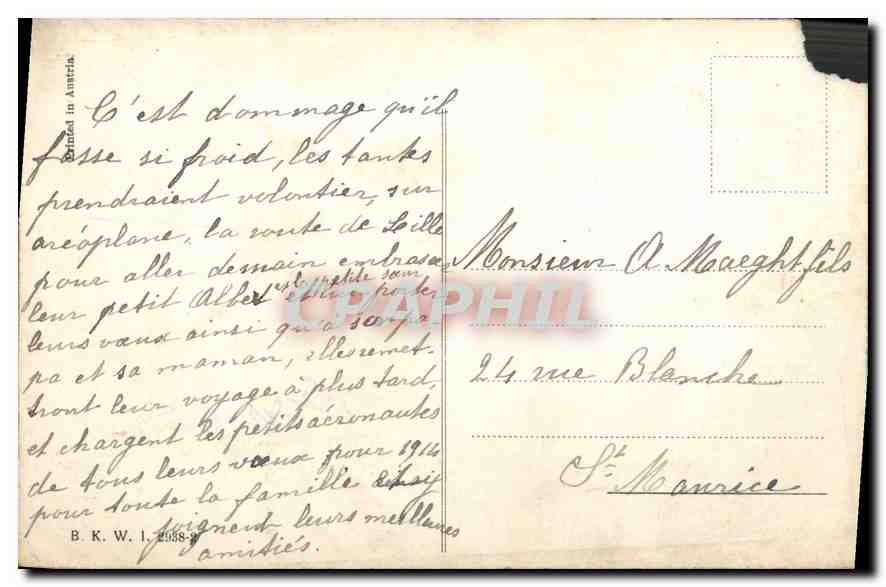 Printed in Austria.
C'est dommage qu'il
fasse si froid, les tantes
prendraient volontier, sur
aréoplane, la route de Lille
pour aller demain embrasser
leur petit Albert et la petite sœur et lui porter
leurs vœux ainsi qu'à son pa-
pa et sa maman, elles remet-
tront leur voyage à plus tard,
et chargent les petits aéronautes
de tous leurs vœux pour 1914
pour toute la famille et y
joignent leurs meilleures
amitiés.
B. K. W. I. 2938-2
Monsieur A Maeght fils
24 rue Blanche
St Maurice
CPAPHIL